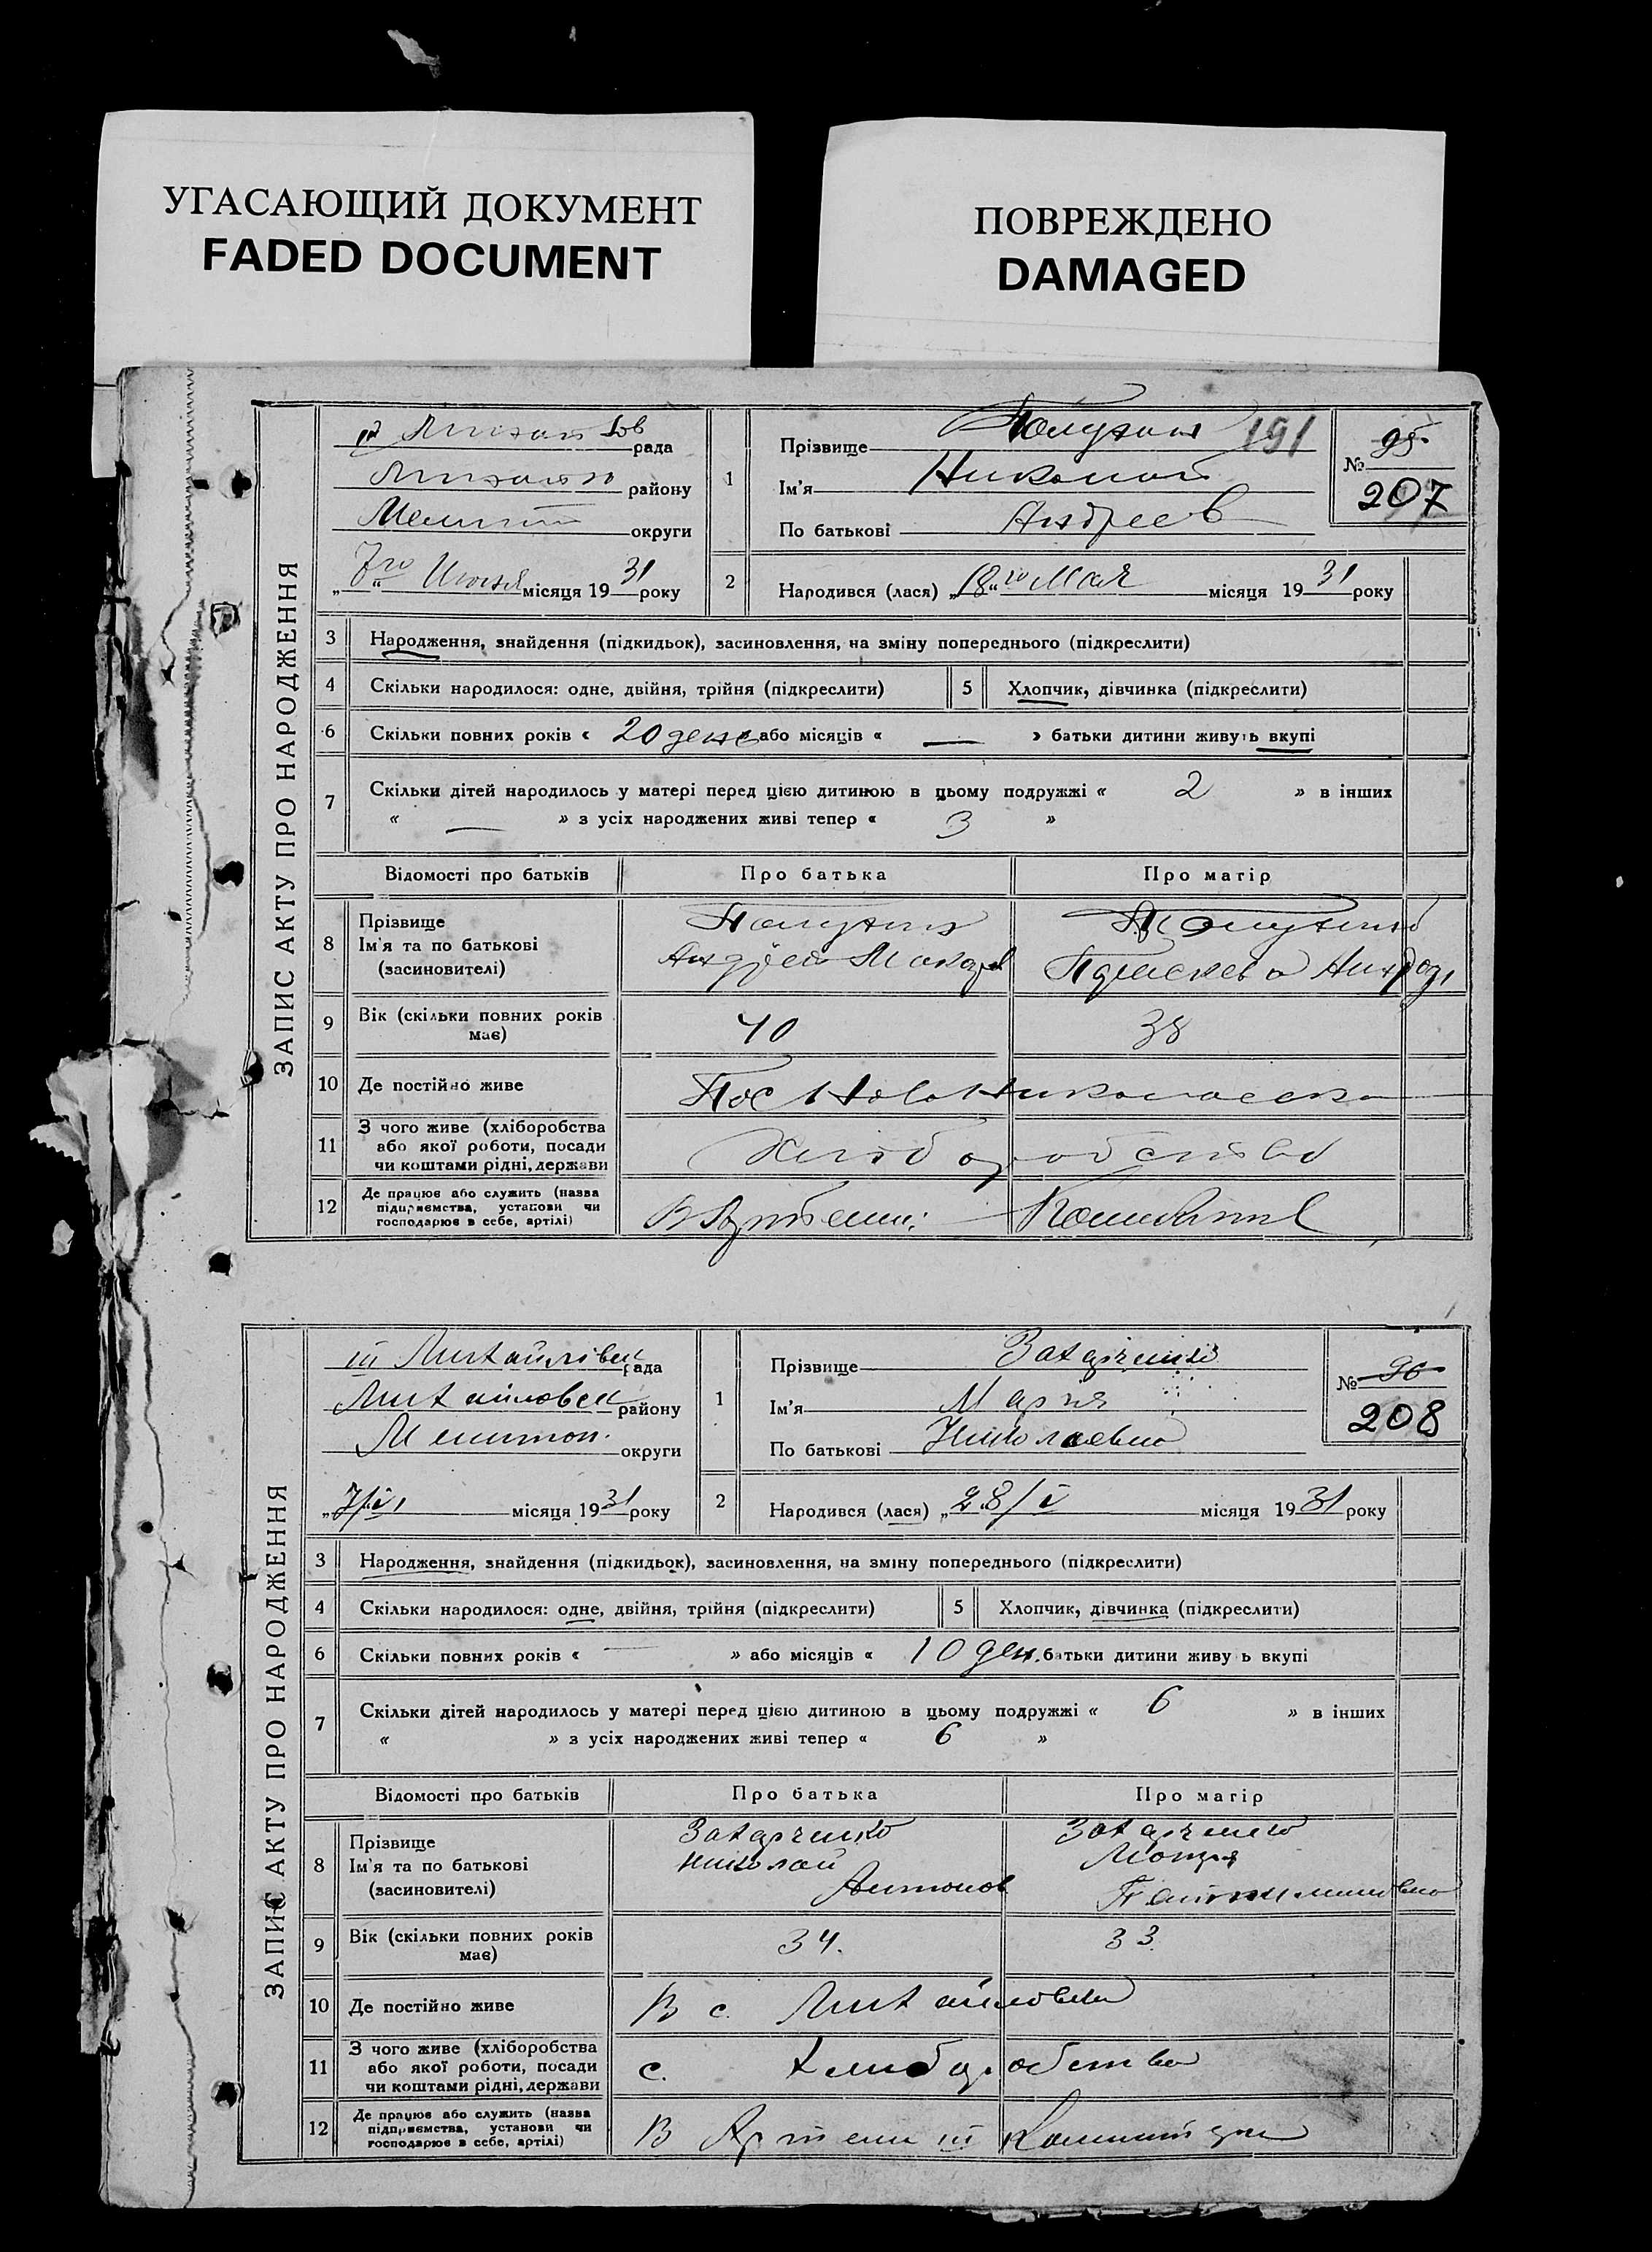 УГАСАЮЩИЙ ДОКУМЕНТ
FADED DOCUMENT
ПОВРЕЖДЕНО
DAMAGED
ЗАПИС АКТУ ПРО НАРОДЖЕННЯ
рада
району
Мелитоп округи
„7го“ Июня місяця 1931 року
1
Прізвище 191
Ім'я Николай
По батькові Андреев
№ 95
207
2
Народився (лася) „18“го Мая місяця 1931 року
3 Народження, знайдення (підкидьок), засиновлення, на зміну попереднього (підкреслити)
4 Скільки народилося: одне, двійня, трійня (підкреслити)
5 Хлопчик, дівчинка (підкреслити)
6 Скільки повних років « 20 або місяців « — » батьки дитини живуть вкупі
7 Скільки дітей народилось у матері перед цією дитиною в цьому подружжі « 2 » в інших
« — » з усіх народжених живі тепер « 3 »
Відомості про батьків Про батька Про матір
8 Прізвище
Ім'я та по батькові
(засиновителі)
Андрей Макаров
9 Вік (скільки повних років має) 40 38
10 Де постійно живе Пос Ново Николаевка
11 З чого живе (хліборобства або якої роботи, посади чи коштами рідні, держави Хліборобство
12 Де працює або служить (назва підприємства, установи чи господарює в себе, артілі) В Артели
ЗАПИС АКТУ ПРО НАРОДЖЕННЯ
III Михайлівск рада
Михайловск району
Мелитоп. округи
місяця 1931 року
1
Прізвище Захарченко
Ім'я Мария
По батькові Николаевна
№ 96
208
2
Народився (лася) „28/V місяця 1931 року
3 Народження, знайдення (підкидьок), засиновлення, на зміну попереднього (підкреслити)
4 Скільки народилося: одне, двійня, трійня (підкреслити)
5 Хлопчик, дівчинка (підкреслити)
6 Скільки повних років « — » або місяців « 10 ден. батьки дитини живуть вкупі
7 Скільки дітей народилось у матері перед цією дитиною в цьому подружжі « 6 » в інших
« » з усіх народжених живі тепер « 6 »
Відомості про батьків Про батька Про матір
8 Прізвище
Ім'я та по батькові
(засиновителі)
Захарченко
Николай
Антонов
Захарченко
9 Вік (скільки повних років має) 34. 33.
10 Де постійно живе В с. Михайловки
11 З чого живе (хліборобства або якої роботи, посади чи коштами рідні, держави с. хлиборобства
12 Де працює або служить (назва підприємства, установи чи господарює в себе, артілі) В Артели III